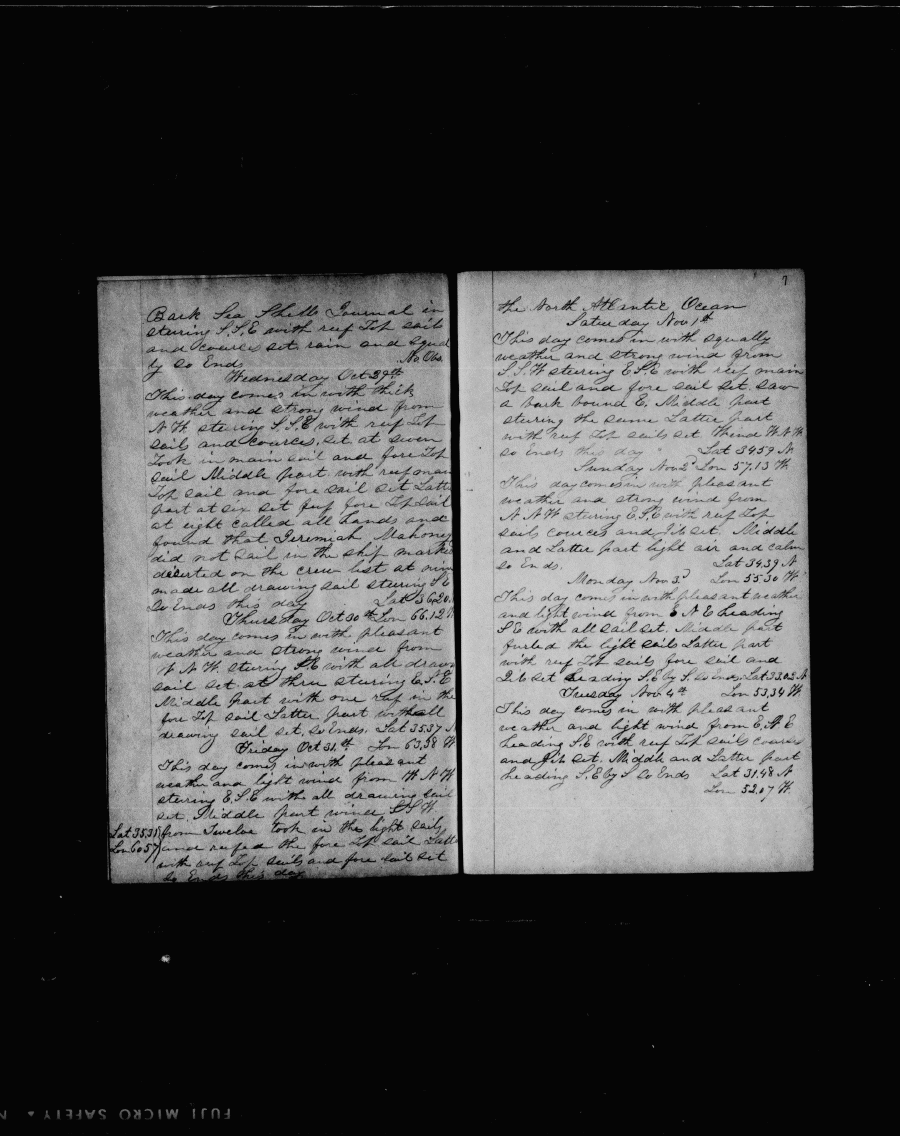 Bark Sea Shell Journal in
stering S.S.E with reef Top sails
and cources set rain and squal
ly so Ends No Obs.
Wednesday Oct 29th
This day comes in with thick
weather and strong wind from
N W. stering S.S.E with reef Top
sails and cources. set at seven
Took in main sail and fore Top
sail Middle part with reef main
Top sail and fore sail set Latter
part at six set reef fore Top sail
at eight called all hands and
found that Jeremiah Mahoney
did not sail in the ship marked
deserted on the crew list at nine
made all drawing sail steering S E
So Ends this day Lat 36,20.
Thursday Oct 30th Lon 66.12 W
This day comes in with pleasant
weather and strong wind from
N. N. W. stering S.E with all drawn
sail set. at three stering E.S.E
Middle part with one reef in the
fore Top sail Latter part with all
drawing sail set. so Ends. Lat 35.37 N
Friday Oct 31.st Lon 63,58 W
This day comes in with pleasant
weather and light wind from W N W
stering E.S.E with all drawing sail
set. Middle part wind S S W.
Lat 35.31 from Twelve took in the light sails
Lon 60.57 and reefed the fore Top sail Latter
with reef Top sails and fore sail set
so Ends this day
7
the North Atlantic Ocean
Saturday Nov 1st
This day comes in with squally
weather and strong wind from
S.S.W steering E.S.E with reef main
Top sail and fore sail set. saw
a bark bound E. Middle part
stering the same Latter part
with reef Top sails set Wind W.N.W.
so Ends this day Lat 34.59 N
Sunday Nov 2d Lon 57.13 W.
This day comes in with pleasant
weather and strong wind from
N N W stering E.S.E with reef Top
sails cources and Jib set. Middle
and Latter part light air and calm
so Ends. Lat 34.39 N
Monday Nov 3.d Lon 55.30 W
This day comes in with pleasant weather
and light wind from E N E heading
S.E with all sail set. Middle part
furled the light sails Latter part
with reef Top sails fore sail and
Jib set heading S.E by S. so Ends. Lat 33.02 N
Tuesday Nov 4th Lon 53,34 W.
This day comes in with pleasant
weather and light wind from E. N. E
heading S.E with reef Top sails courses
and Jib set. Middle and Latter part
heading S.E by S so Ends Lat 31.48 N
Lon 52.07 W.
FUJI MICRO SAFETY